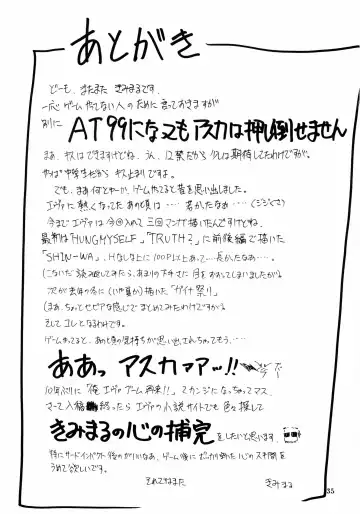 あとがき
どーも、またまた きみまるです。
一応ゲームやってない人のために言っておきますが
別に AT99になってもアスカは押し倒せません
まあ、キスはできますけどね。うん、12禁だから少しは期待してたわけですが。
やっぱ中学生だから キス止まりですよ。
でも、まあ何とゆーか、ゲームやってると昔を思い出しました。
エヴァに熱くなってた あの頃は……若かったなぁ…。(ジジくさ)
今までエヴァは今回入れて三回マンガ描いたんですけどね、
最初は「HUNGMYSELF」、「TRUTH?」に前後編で描いた
「SHIN-WA」、Hなし 上に100P以上あって…長かったなぁ…。
(こないだ読み返してみたら、あまりの下手さに目をおおってしまいましたが)。
次が去年の冬に(いや夏か)描いた「ガイナ祭り」
(まあ、ちょっとセピアな感じでまとめてみたわけですが)。
そして コレとなるわけです。
ゲームやってると、あの頃の気持ちが思い出されちゃてもう……
ああっ アスカァァーッ!!
10年ぶりに「俺エヴァブーム再来!!」ってカンジになっちゃってマス。
マって入稿終ったら エヴァの小説サイトでも色々探して
きみまるの心の補完 をしたいと思います。
特にサードインパクト後のがいいなあ、ゲーム後にポッカリ空いた心のスキ間を
うめて欲しいです。
それでわまた きみまる
35